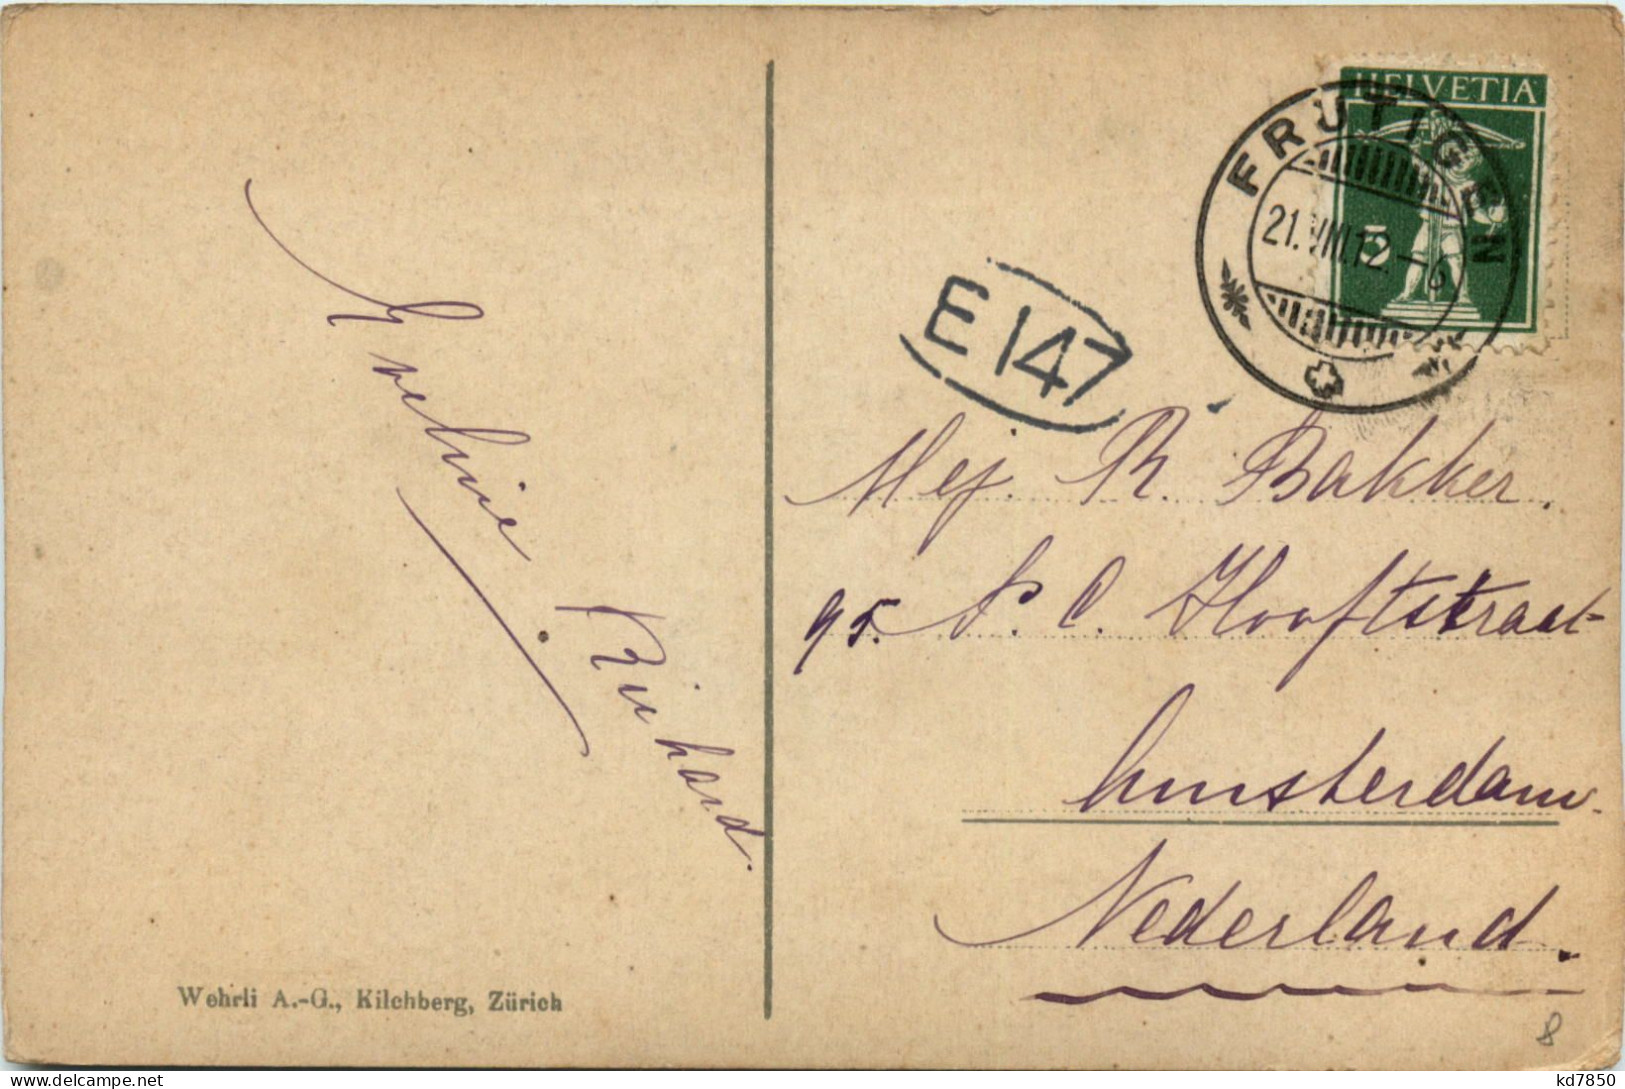 HELVETIA
5
FRUTIGEN
21.VIII.12.-6
E 147
Mej. R. Bakker.
95. P. C. Hooftstraat
Amsterdam.
Nederland.
Richard.
Wehrli A.-G., Kilchberg, Zürich
8
delcampe.net
kd7850